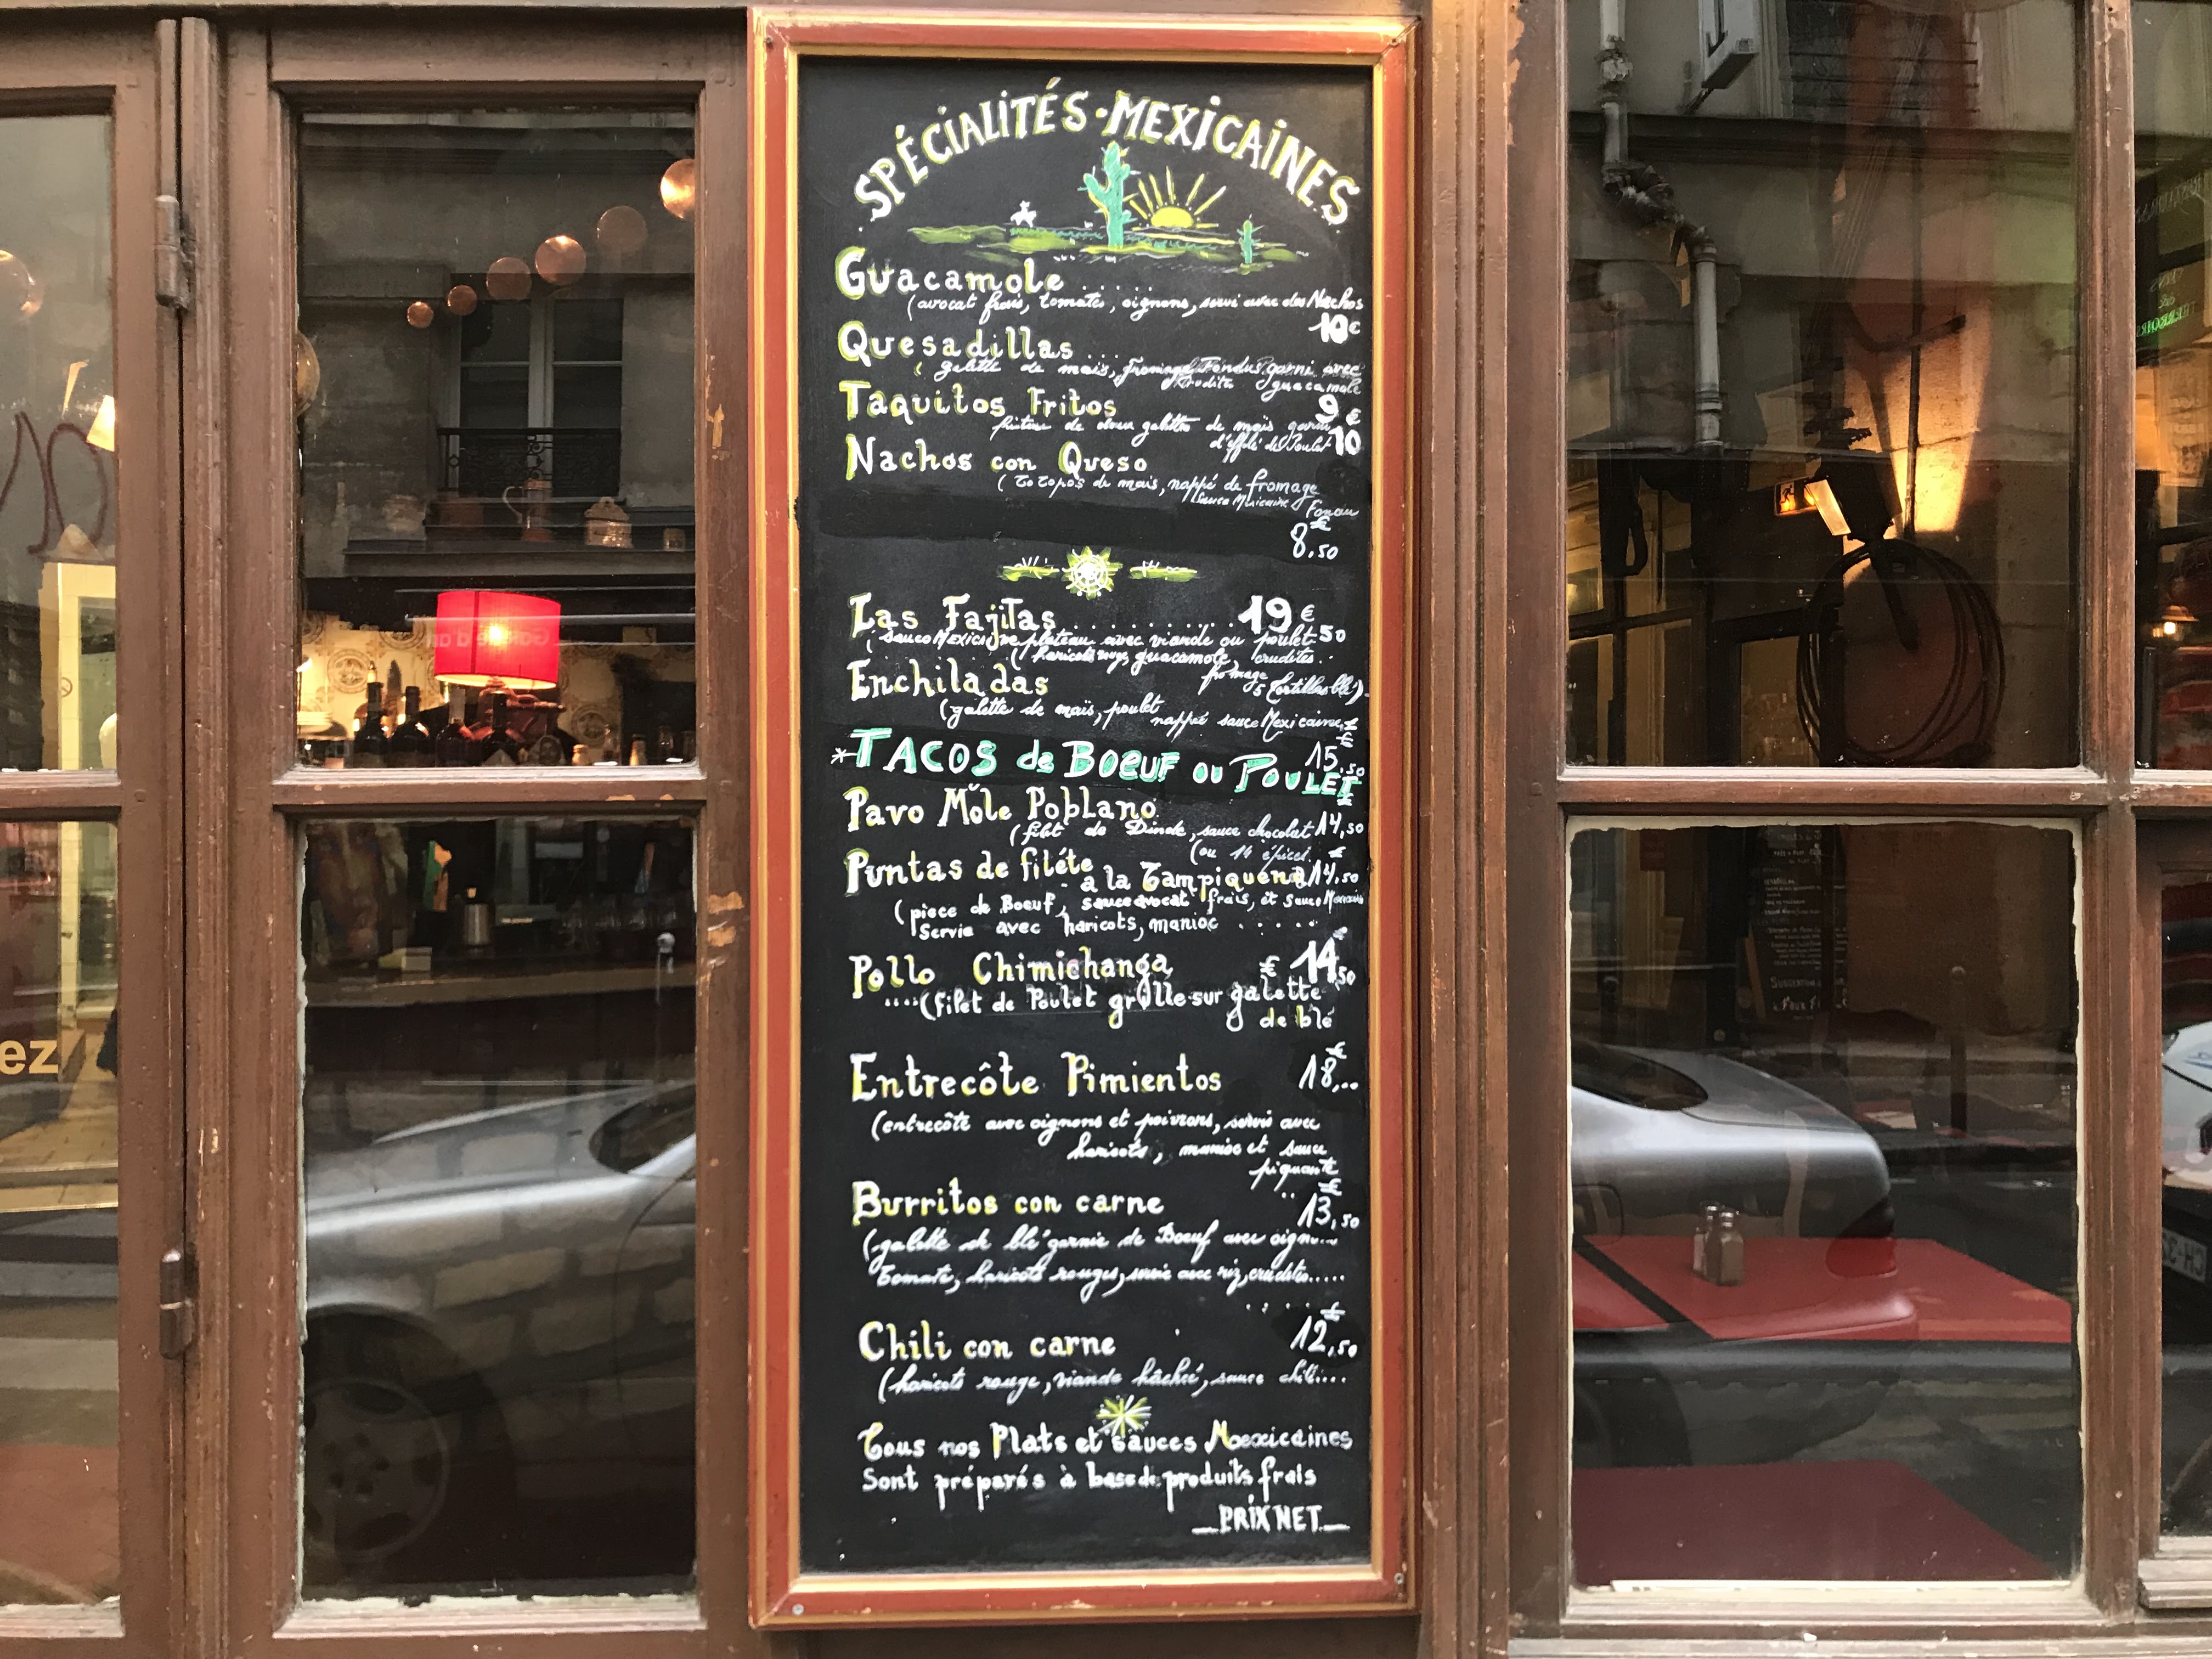 SPÉCIALITÉS · MEXICAINES
Guacamole .....
(avocat frais, tomates, oignons, servi avec des Nachos
10€
Quesadillas ...
( galette de maïs, fromage Fondus, garni avec
crudité guacamole
Taquitos Fritos 9 €
friture de deux galettes de maïs garni
d'éffilé de Poulet 10
Nachos con Queso
( totopos de maïs, nappé de fromage
Sauce Mexicaine Fondu
€
8,50
Las Fajitas .......... 19 €
( sauce Mexicaine plateau avec viande ou poulet. 50
( haricots rouge, guacamole, crudités..
fromage
Enchiladas 5 tortillas blé)
(galette de maïs, poulet
nappé sauce Mexicaine, €
€
15,50
*TACOS de BOEUF ou POULET
€
Pavo Mole Poblano
(filet de Dinde, sauce chocolat 14,50
(ou 14 épices. €
Puntas de filéte
a la Tampiquena 14,50
(piece de Boeuf, sauce avocat frais, et sauce
Servie avec haricots, manioc .....
Pollo Chimichanga € 14,50
....(filet de Poulet grille sur galette
de blé
Entrecôte Pimientos 18,..
€
(entrecôte avec oignons et poivrons, servis avec
haricots, manioc et sauce
piquante
Burritos con carne 13,50
€
(galette de blé garnie de Boeuf avec oign...
Tomate, haricots rouges, servie avec riz, crudités.....
Chili con carne 12,50
€
(haricots rouge, viande hâchée, sauce chili....
Tous nos Plats et sauces Mexicaines
Sont préparés à base de produits frais
PRIX NET
ez